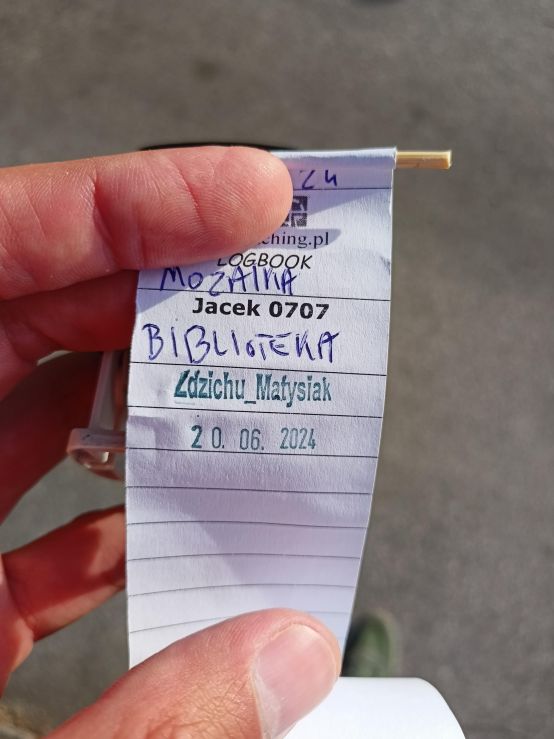 24
ching.pl
LOGBOOK
MOZAIKA
Jacek 0707
BIBLIOTEKA
Zdzichu_Matysiak
20. 06. 2024